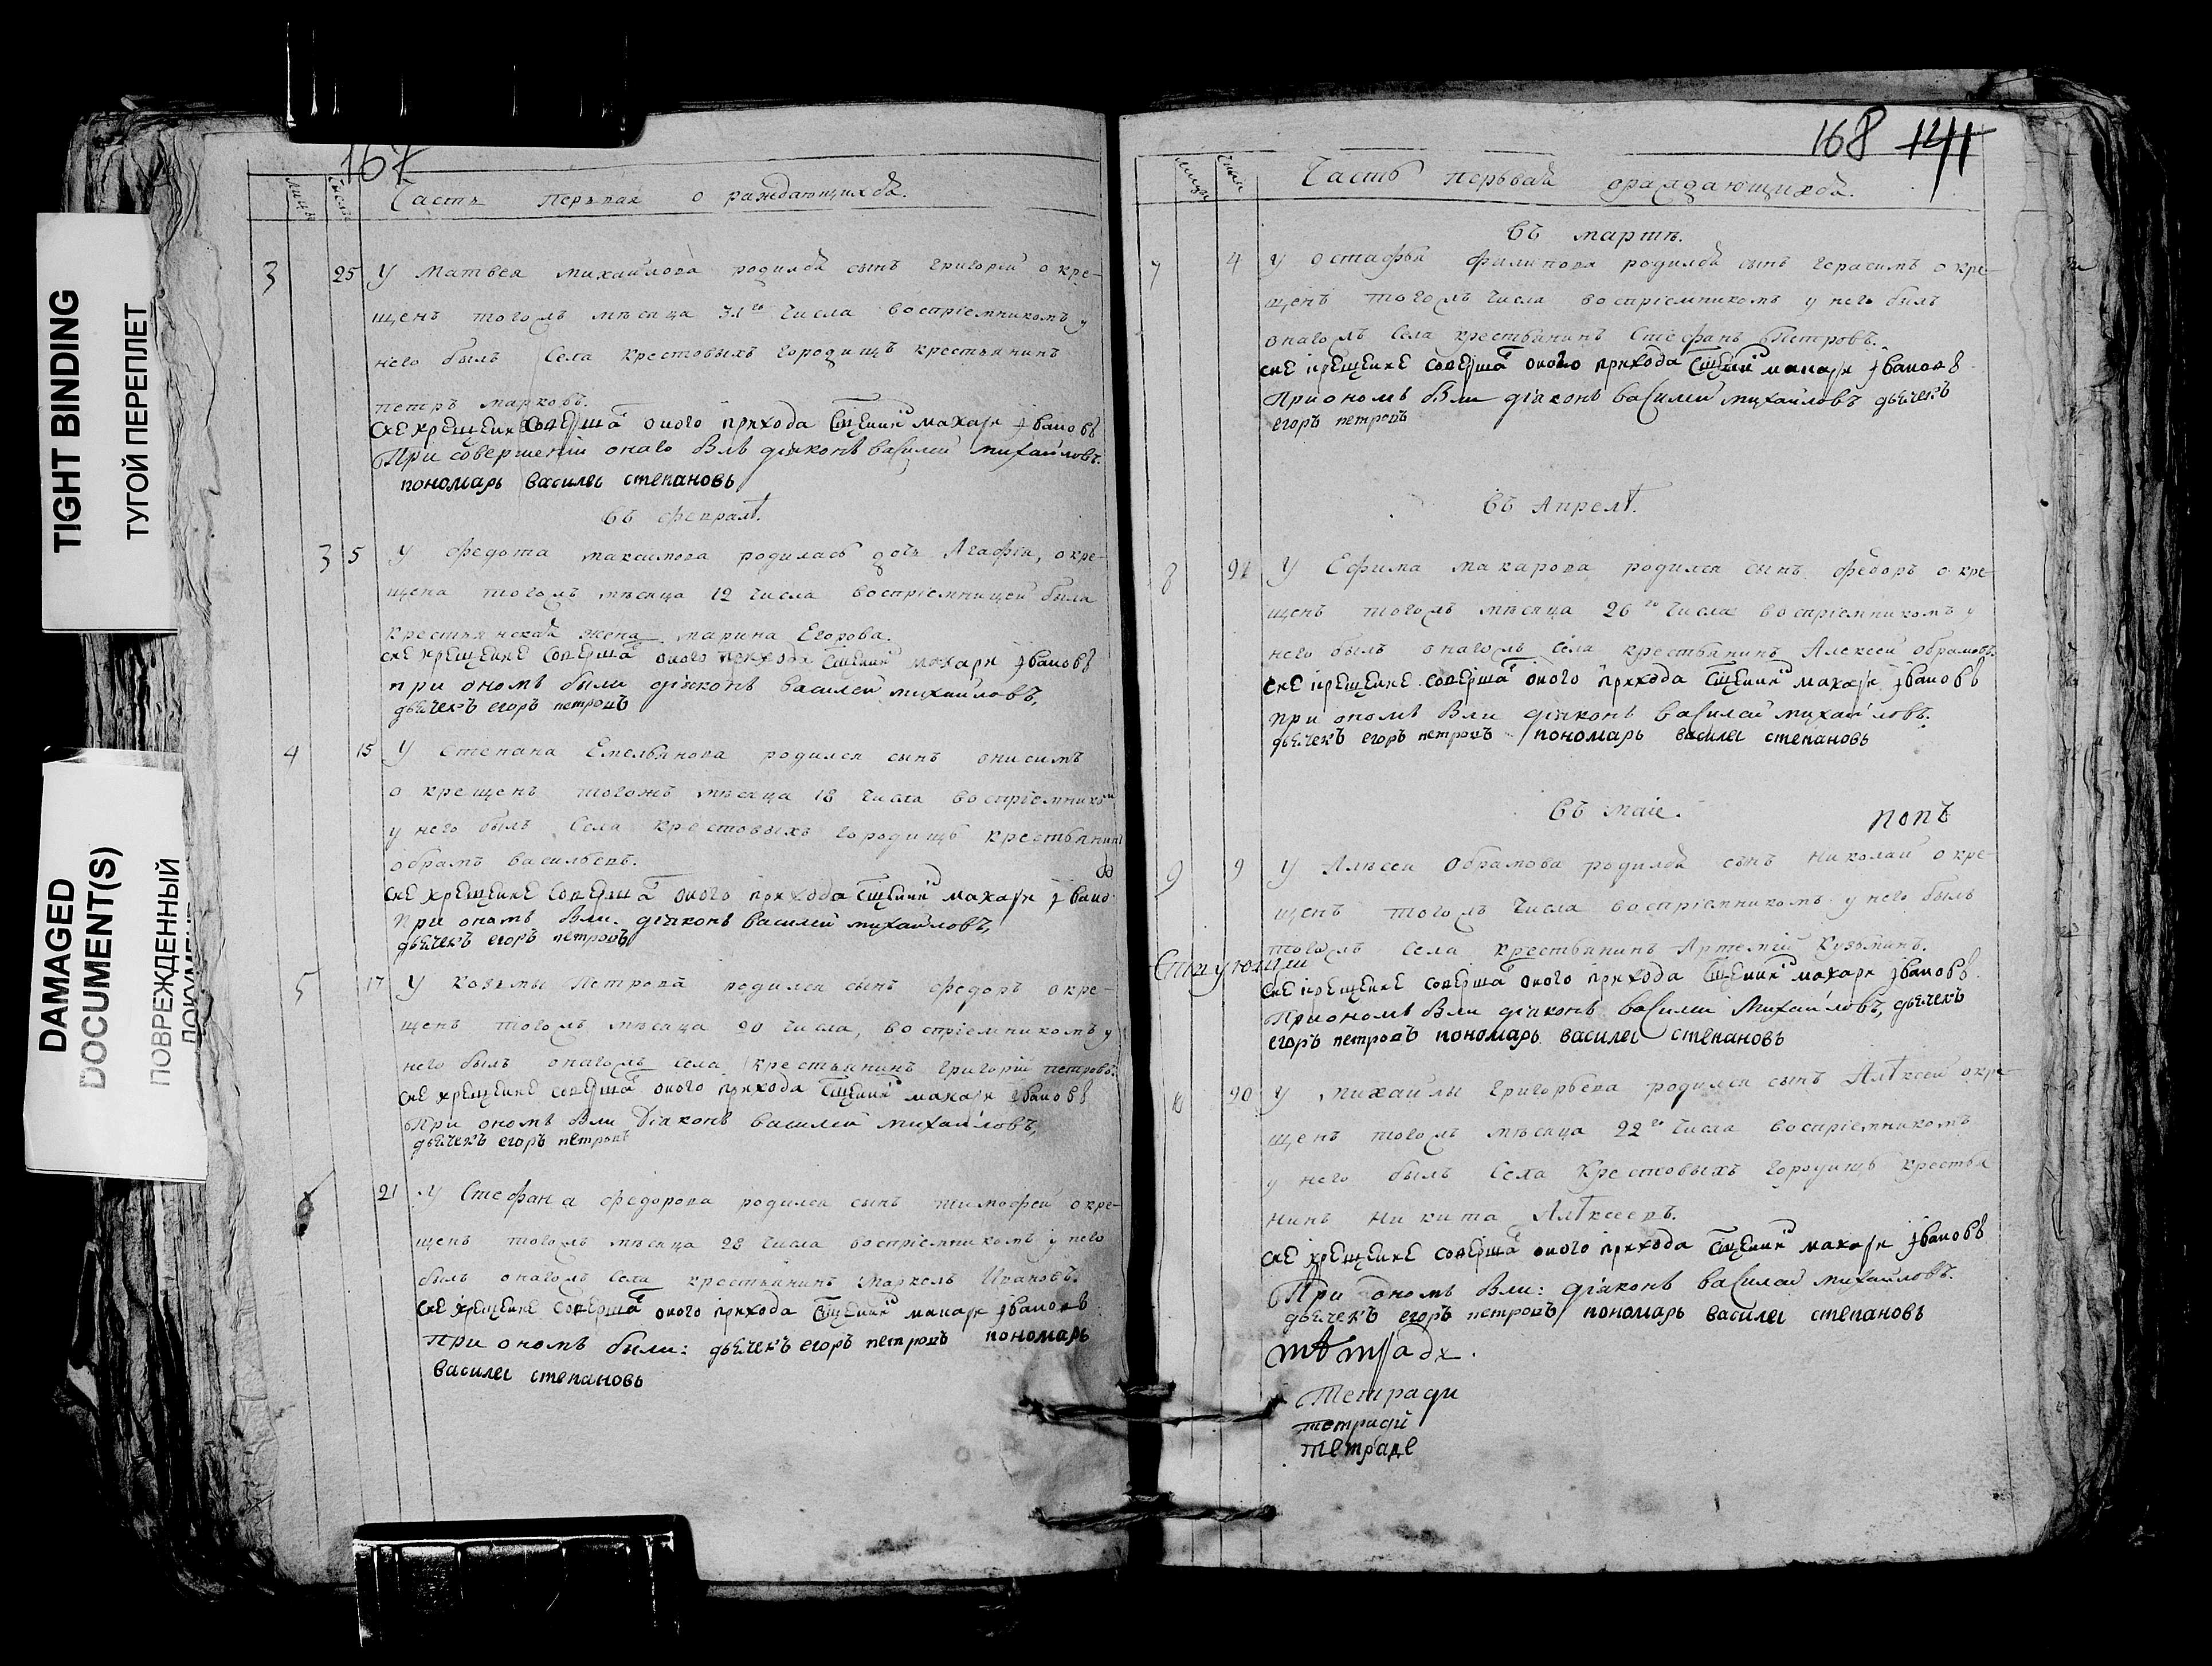 TIGHT BINDING
ТУГОЙ ПЕРЕПЛЕТ
DAMAGED
DOCUMENT(S)
ПОВРЕЖДЕННЫЙ
167
числа
Часть Перьвая о раждающихся.
3 25 У Матвея михайлова родился сынъ григорей окре-
щенъ тогожъ мѣсяца 31го числа воспріемникомъ у
него былъ Села крестовыхъ городищъ крестьянинъ
петръ марковъ.
сие крещение соверша оного прихода макари їванов
При совершеніи онаго Влъ діяконъ василей михайловъ.
пономарь василеі степановъ
Въ февралѣ.
3 5 У федота максимова родилась дочь Агафія, окре-
щена тогожъ мѣсяца 12 числа воспріемницей была
крестьянская жена марина Егорова.
сие крещение соверша оного прихода макари їванов
при ономъ были діяконъ василей михайловъ,
дьячекъ егоръ петровъ
4 15 У степана Емельянова родился сынъ онисимъ
о крещенъ тогожъ мѣсяца 18 числа воспріемником
у него былъ Села крестовыхъ городищъ крестьянинъ
обрамъ васильевъ.
сие крещение соверша оного прихода макари ївано
при ономъ Вли діяконъ василей михайловъ,
дьячекъ егоръ петровъ
5 17 У козьмы Петрова родился сынъ федоръ окре-
щенъ тогожъ мѣсяца 20 числа, воспріемникомъ у
него былъ онагожъ села крестьянинъ григорій петровъ.
сие крещение соверша оного прихода макари їванов
При ономъ Вли Діяконъ василей михайловъ,
дьячекъ егоръ петровъ
6 21 У Стефана федорова родился сынъ тимофей окре-
щенъ тогожъ мѣсяца 28 числа воспріемникомъ у него
былъ онагожъ Села крестьянинъ Маркелъ Ивановъ.
сие крещение соверша оного прихода макари їванов
При ономъ были: дьячекъ егоръ петровъ пономарь
василеі степановъ
168 141
Часть перьвая ораждающихся.
Въ мартѣ.
7 4 У остафья филипова родился сынъ герасимъ окре-
щенъ тогожъ числа воспріемникомъ у него былъ
онагожъ Села крестьянинъ Стефанъ Петровъ.
сие крещение соверша оного прихода макари їванов
При ономъ Вли діяконъ василей михайловъ дьячекъ
егоръ петровъ
Въ Апрелѣ.
8 21 У Ефима макарова родился сынъ федоръ окре-
щенъ тогожъ мѣсяца 26го числа воспріемникомъ у
него былъ онагожъ Села крестьянинъ Алексей обрамовъ.
сие крещение соверша оного прихода макари їванов
при ономъ Вли діяконъ василей михайловъ.
дьячекъ егоръ петровъ пономарь василеі степановъ
Въ маіе. попъ
9 9 У Алѣсея Обрамова родился сынъ николай окре-
щенъ тогожъ числа воспріемникомъ у него былъ
тогожъ села крестьянинъ Артемей Кузьминъ.
сие крещение соверша оного прихода макари їванов
При ономъ Вли діяконъ василей Михайловъ, дьячекъ
егоръ петровъ пономарь василеі степановъ
10 20 У михайлы Григорьева родился сынъ Алѣксей окре-
щенъ тогожъ мѣсяца 22го числа воспріемникомъ
у него былъ Села Крестовыхъ городищъ крестья
нинъ никита Алѣксеевъ.
сие крещение соверша оного прихода макари їванов
При ономъ Вли: діяконъ василей михайловъ.
дьячекъ егоръ петровъ пономарь василеі степановъ
тѣтради.
Тетради
тетради
тетраде